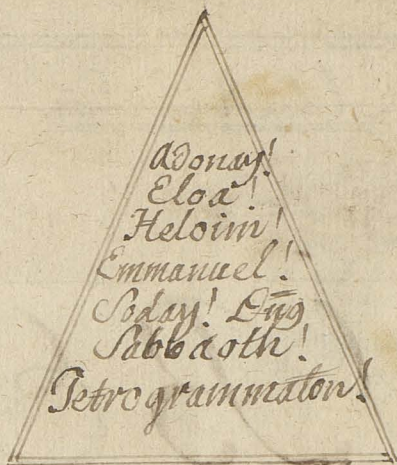 Adonay!
Eloa!
Heloim!
Emmanuel!
Soday! Dn̄g
Sabbaoth!
Tetrogrammaton!